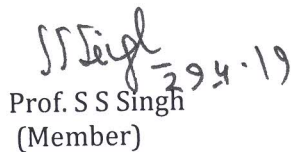 SSSingh
29.4.19
Prof. S S Singh
(Member)